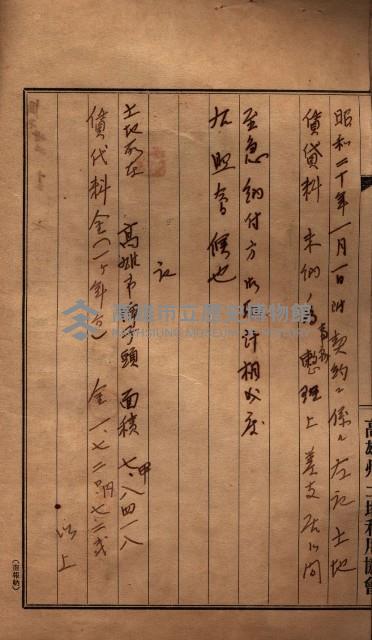 昭和二十年一月一日附契約ニ係ル左記土地
賃貸料未納ノ為事務整理上差支居候間
至急納付方御取計相成度
右照会候也
記
土地所在 高雄市 面積 七甲八四一八
賃代料金(一ヶ年分) 金一、七二 円七二
以上
高雄州土地利用協會
高雄市立歷史博物館
KAOHSIUNG MUSEUM OF HISTORY